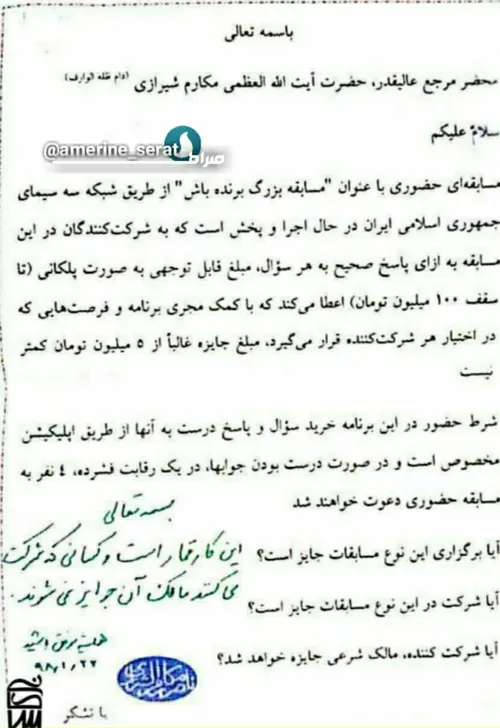 باسمه تعالی
محضر مرجع عالیقدر، حضرت آیت الله العظمی مکارم شیرازی (دام ظله الوارف)
سلامٌ علیکم
@amerine_serat
صراط
مسابقه‌ای حضوری با عنوان "مسابقه بزرگ برنده باش" از طریق شبکه سه سیمای
جمهوری اسلامی ایران در حال اجرا و پخش است که به شرکت‌کنندگان در این
مسابقه به ازای پاسخ صحیح به هر سؤال، مبلغ قابل توجهی به صورت پلکانی (تا
سقف ۱۰۰ میلیون تومان) اعطا می‌کند که با کمک مجری برنامه و فرصت‌هایی که
در اختیار هر شرکت‌کننده قرار می‌گیرد، مبلغ جایزه غالباً از ۵ میلیون تومان کمتر
نیست
شرط حضور در این برنامه خرید سؤال و پاسخ درست به آنها از طریق اپلیکیشن
مخصوص است و در صورت درست بودن جوابها، در یک رقابت فشرده، ٤ نفر به
مسابقه حضوری دعوت خواهند شد
بسمه تعالی
آیا برگزاری این نوع مسابقات جایز است؟
این کار قمار است و کسانی که شرکت
آیا شرکت در این نوع مسابقات جایز است؟
می کنند مالک آن جوایز نمی شوند.
آیا شرکت کننده، مالک شرعی جایزه خواهد شد؟
همیشه موفق باشید
۹۸/۱/۲۷
با تشکر